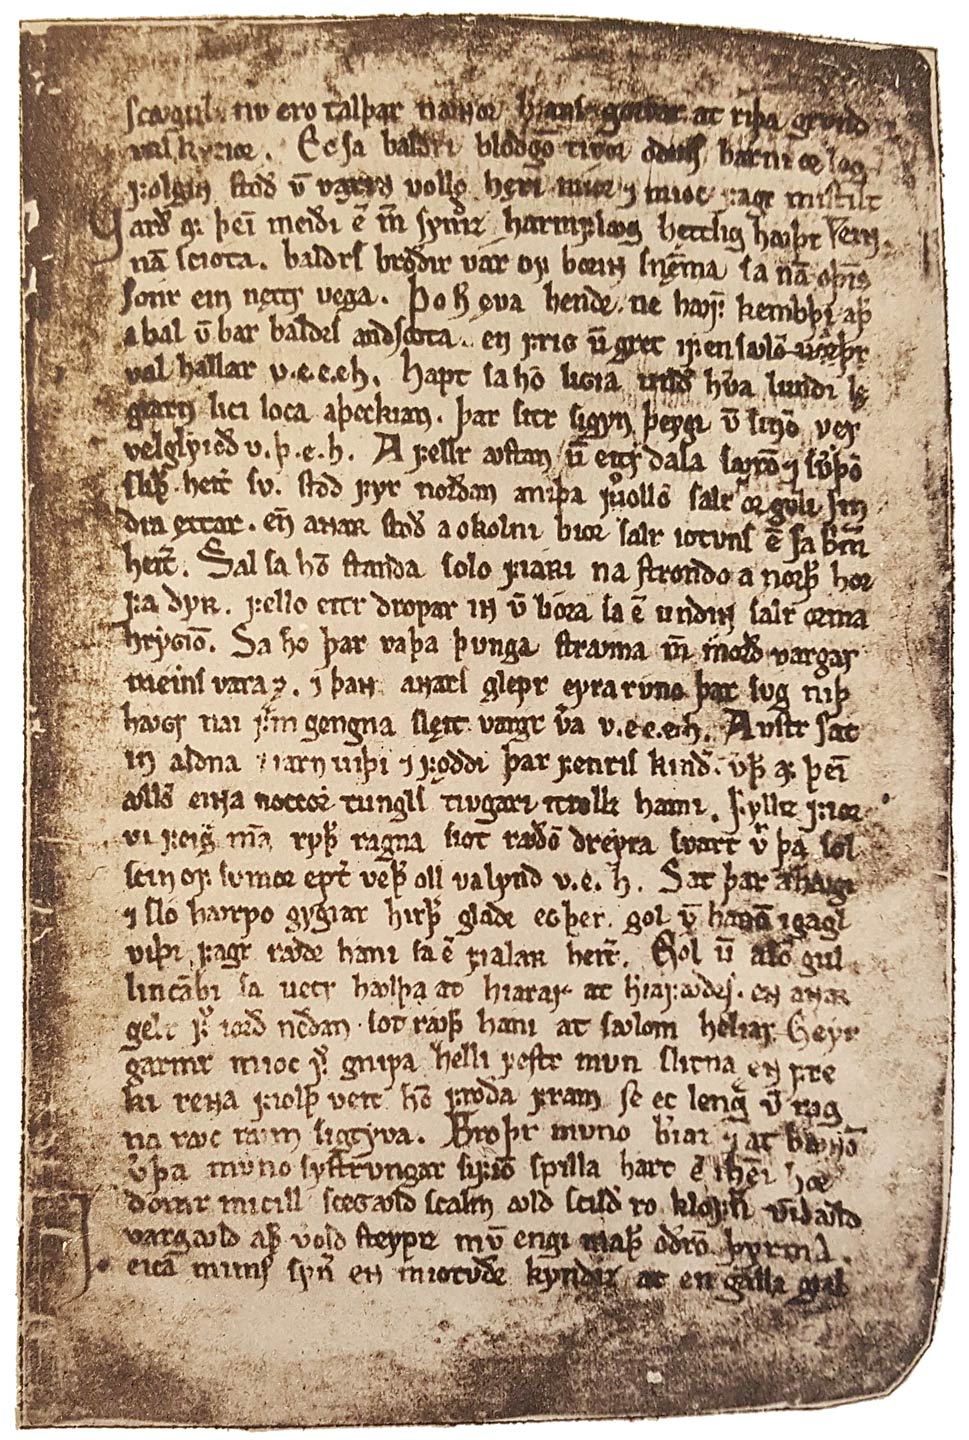 scꜹgul. nv ero talþar naɴor herians gorvar at riþa grvnd
valkyrior. Ec sa baldri blodgō tivor odins barni ør log
folgin stod ū vaxiɴ vollō heri mior ⁊ mioc fagr mistilt
Uard af þeī meidi ē m̄ syndiz harmflꜹg hettlig hꜹþr
nā sciota. baldrs brodir var of boriɴ snēma sa nā oþiɴs
sonr ein nęttr vega. Þo h̄ ęva hendr ne hꜹfuþ kembþi aþ
a bal ū bar baldrs andscota. en frig ū gret ifen sꜹlō
val hallar v.e.e.eh. Hapt sa hō ligia und hvera lundi lę
giarn lici loca aþeckian. þar sitr sigyn þeygi ū sinō ver
velglyiod v.þ.e.h. A fellr ꜹstan ū eitrdala sꜹxō ⁊ svþō
sliþr heitir sv. stod fyr nordan a niþa fiollō salr ór gulli sin
dra ęttar. en aɴar stod a okolni bior salr iotvns ē sa brim̄
heitir. Sal sa hō standa solo fiaʀi na strondo a norþ hor
fa dyʀ. fello eitr dropar iɴ ū lióra sa ē undiɴ salr orma
hryGiō. Sa hō þar vaþa þunga strꜹma m̄ⁿ meinsvara ⁊ mord vargar
⁊ þaɴ aɴars glepr eyra rúno þar súg niþ
hꜹGr nái fram gengna sleit vargr vera v.e.e.eh. Austr sat
in aldna iiarnviþi ⁊ fóddi þar fenris kindir. verþr af þeī
ꜹllō eiɴa noccoʀ tungls tivgari i trollz hami. Fylliz fior
vi feigra maɴa ryþr ragna siot rꜹdō dreyra svart ū þa sol
scin of sumor eptir veþr oll valynd v.e.h. Sat þar a hꜹgi
⁊ slo hꜹrpo gygiar hirþir gladr ecþer. gol ū hanō igagl
viþi fagr rꜹdr hani sa ē fialaʀ heitir. Gol ū asō gul
lincābi sa uecr hꜹlþa at hiarar at heriafꜹdrs. en aɴar
gelr f iord nedan sótrꜹþr hani at sꜹlom heliar. Geyr
garmr mioc f gnipa helli festr mun slitna en fre
ki reɴa fiolþ veit hō froda fram se ec lengra ū rag
na rꜹc rꜹm sigtyva. Broþr muno beriaz ⁊ at bꜹnō
verþa muno systrungar sifiō spilla hart ē i heimi hór
dómr micill sceGꜹld scalm ꜹld scildir ro klofnir vindꜹld
vargꜹld aþr verold steypiz mun engi maþr ódrō þyrma.
eica mims synir en miotvdr kyndiz at en galla gial